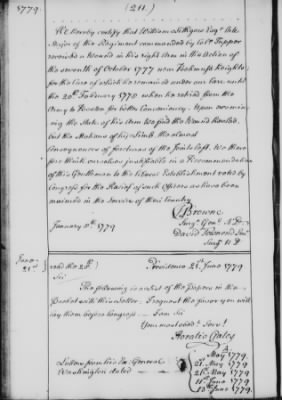 1779. (211.)
We hereby certify that William Lithgow Esqr. late
Major of the Regiment commanded by Colo. Tupper
received a Wound in his right Arm in the Action of
the seventh of October 1777 near Freeman's Heights,
for the Cure of which he remained under our Care until
the 20th. February 1778 when he retired from the
Army to Boston for better Conveniency. Upon examin-
ing the State of his Arm We find the Wound healed,
but the Motion of his Limb the almost
consequences of fractures of the Joints lost. We there-
fore think ourselves justifiable in a Recommendation
of this Gentleman to the liberal Establishment voted by
Congress for the Relief of such Officers as have been
maimed in the Service of their Country
J Browne
January 8th. 1779 Surgn. Genl. N. D.
David Townsend
Surgn. N D
June
21st read the 28th.) Providence 21st. June 1779
Sir
The following is a List of the papers in the
Packet with this Letter. I request the favor you will
lay them before Congress. I am Sir
Your most obedt. Servt
Horatio Gates
Letters from his Ex. General
Washington dated
May 1779.
21st. May 1779
May 1779
11th. June 1779
13th. June 1779